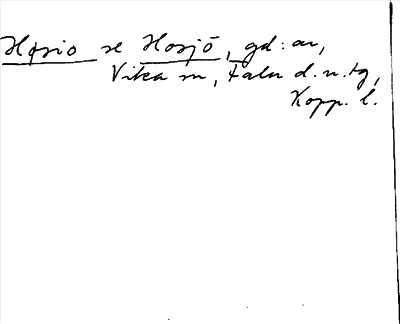 Hosio se Hosjö, gd: ar,
Vika sn, Falu d.n. tg,
Kopp. l.